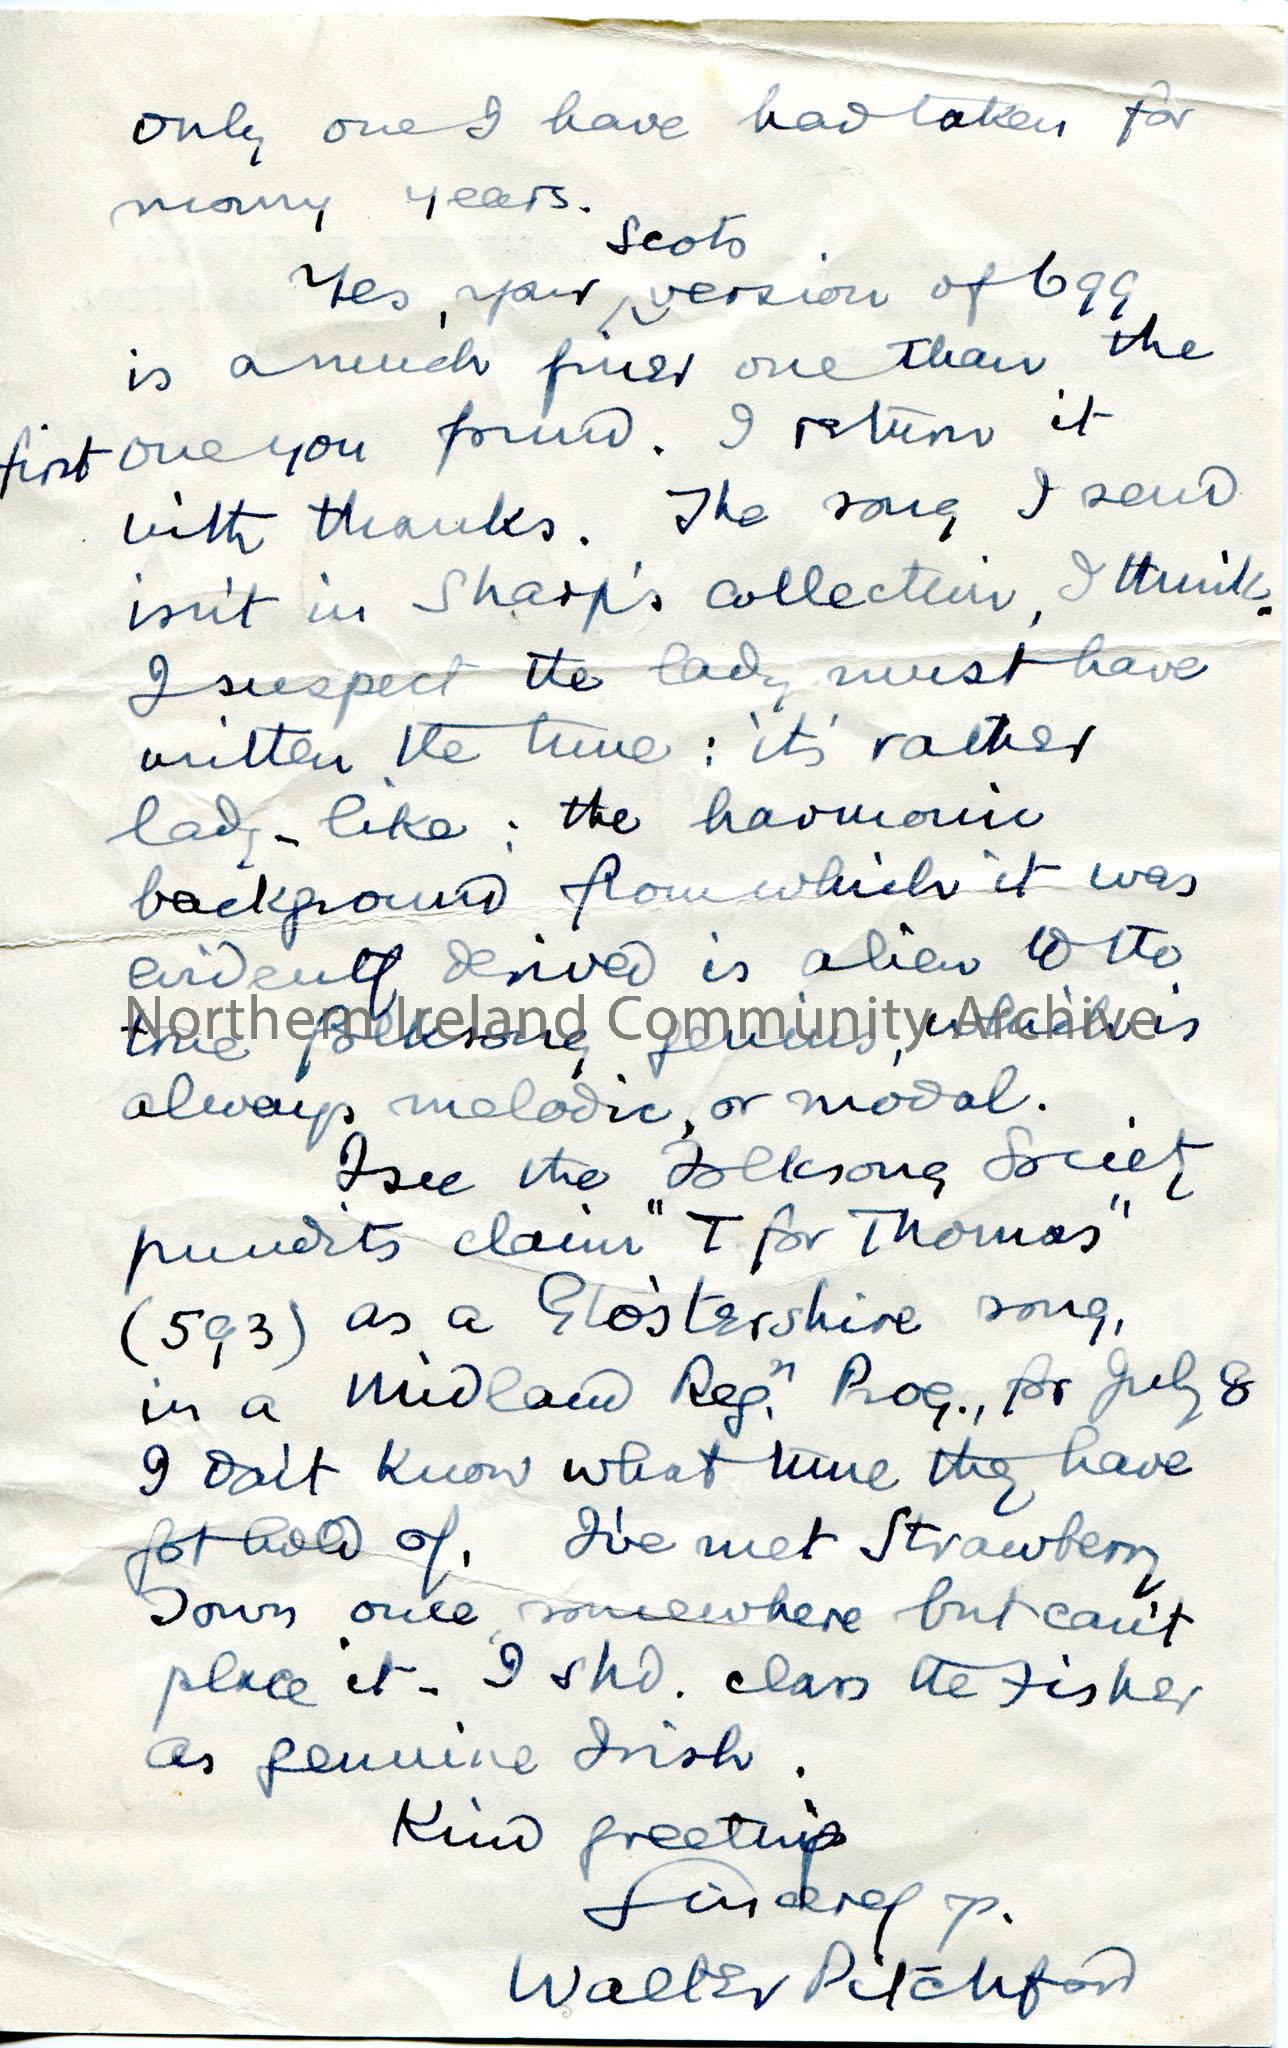 only one I have had taken for
many years.
Scots
Yes, your version of 699
is a much finer one than the
first one you found. I return it
with thanks. The song I send
isn't in Sharp's collection, I think.
I suspect the lady must have
written the tune: it's rather
lady-like: the harmonic
background from which it was
evidently derived is alien to the
true folksong genius, which is
always melodic, or modal.
I see the Folksong Society
pundits claim "T for Thomas"
(593) as a Glo'stershire song,
in a Midland Reg.n Prog., for July 8
I don't know what tune they have
got hold of. I've met Strawberry
Town once somewhere but can't
place it - I shd. class the Fisher
as genuine Irish.
Kind greetings
Sincerely yr.
Walter Pitchford
Northern Ireland Community Archive